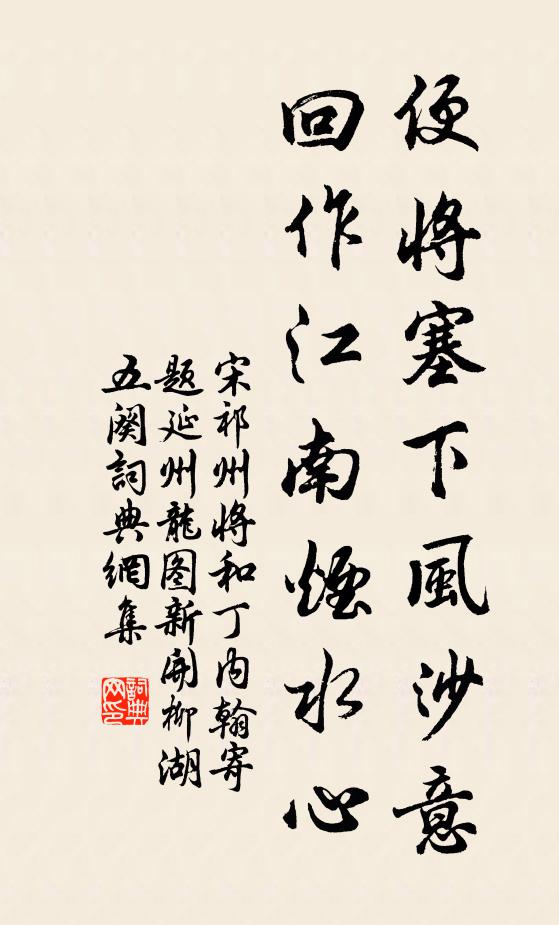 便將塞下風沙意
回作江南煙水心
宋祁州將和丁内翰寄
题延州龍图新開柳湖
五闋詞典網集
詞典
网印